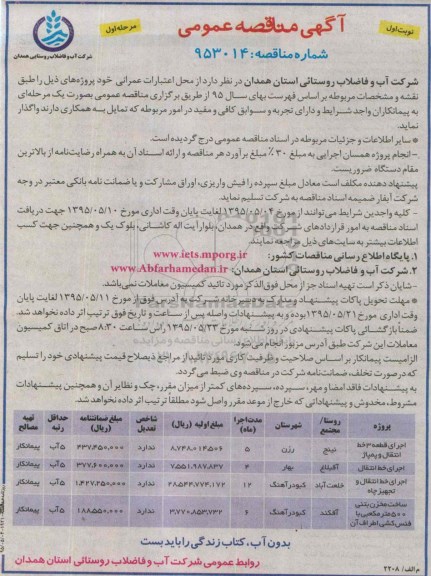 آگهی مناقصه عمومی
نوبت اول
مرحله اول
شرکت آب و فاضلاب روستایی همدان
شماره مناقصه: ۹۵۳۰۱۴
شرکت آب و فاضلاب روستائی استان همدان در نظر دارد از محل اعتبارات عمرانی خود پروژه‌های ذیل را طبق
نقشه و مشخصات مربوطه بر اساس فهرست بهای سال ۹۵ از طریق برگزاری مناقصه عمومی بصورت یک مرحله‌ای
به پیمانکاران واجد شرایط و دارای تجربه و سوابق کافی و مفید در امور مربوطه که تمایل به همکاری دارند واگذار
نماید.
* سایر اطلاعات و جزئیات مربوطه در اسناد مناقصه عمومی درج گردیده است.
- انجام پروژه همسان اجرایی به مبلغ ۳۰٪ مبلغ برآورد هر مناقصه و ارائه اسناد آن به همراه رضایت‌نامه از بالاترین
مقام دستگاه ضروریست.
پیشنهاد دهنده مکلف است معادل مبلغ سپرده را فیش واریزی، اوراق مشارکت و یا ضمانت نامه بانکی معتبر در وجه
شرکت آبفار ضمیمه اسناد مناقصه به شرکت تسلیم نماید.
- کلیه واجدین شرایط می توانند از مورخ ۱۳۹۵/۰۵/۰۴ لغایت پایان وقت اداری مورخ ۱۳۹۵/۰۵/۱۰ جهت دریافت
اسناد مناقصه به امور قراردادهای شرکت واقع در همدان، بلوار آیت اله کاشانی، بلوک یک و همچنین جهت کسب
اطلاعات بیشتر به سایت‌های ذیل مراجعه نمایند.
۱. پایگاه اطلاع رسانی مناقصات کشور: www.iets.mporg.ir
۲. شرکت آب و فاضلاب روستائی استان همدان: www.Abfarhamedan.ir
- شایان ذکر است تهیه اسناد جز از محل فوق الذکر مورد تائید کمیسیون معاملات نمی‌باشد.
* مهلت تحویل پاکات پیشنهاد و مدارک به دبیرخانه شرکت به آدرس فوق از مورخ ۱۳۹۵/۰۵/۱۱ لغایت پایان
وقت اداری مورخ ۱۳۹۵/۰۵/۲۱ بوده و به پیشنهادات واصله پس از ساعت و تاریخ فوق ترتیب اثر داده نخواهد شد.
ضمناً بازگشائی پاکات پیشنهادی در روز شنبه مورخ ۱۳۹۵/۰۵/۲۳ راس ساعت ۸:۳۰ صبح در اتاق کمیسیون
معاملات این شرکت طبق آدرس مزبور انجام می‌شود.
الزامیست پیمانکار بر اساس صلاحیت و ظرفیت کاری مورد تائید از مراجع ذیصلاح قیمت پیشنهادی خود را تسلیم
که در صورت تخلف، ضمانت‌نامه شرکت در مناقصه وی ضبط می‌گردد.
به پیشنهادات فاقد امضا و مهر، سپرده، سپرده‌های کمتر از میزان مقرر، چک و نظایر آن و همچنین پیشنهادات
مشروط، مخدوش و پیشنهاداتی که خارج از موعد مقرر واصل شود مطلقاً ترتیب اثر داده نخواهد شد.
پروژه | روستا/مجتمع | شهرستان | مدت اجرا (ماه) | مبلغ اولیه (ریال) | شاخص تعدیل | مبلغ ضمانتنامه (ریال) | حداقل رتبه | تهیه مصالح
اجرای قطعه ۳ خط انتقال و پمپاژ | نینج | رزن | ۵ | ۸,۷۴۸,۰۱۴,۵۰۶ | ندارد | ۴۳۷,۴۵۰,۰۰۰ | ۵ آب | پیمانکار
اجرای خط انتقال | آقبلاغ | بهار | ۴ | ۷,۵۵۱,۹۸۷,۸۳۷ | ندارد | ۳۷۷,۶۰۰,۰۰۰ | ۵ آب | پیمانکار
اجرای خط انتقال و تجهیز چاه | خلعت آباد | کبودرآهنگ | ۱۲ | ۲۸,۵۴۴,۷۷۴,۱۷۲ | ندارد | ۱,۴۲۷,۲۵۰,۰۰۰ | ۵ آب | پیمانکار
ساخت مخزن بتنی ۵۰۰ متر مکعبی با فنس کشی اطراف آن | آقکند | کبودرآهنگ | ۶ | ۳,۷۷۰,۸۵۳,۷۳۲ | ندارد | ۱۸۸,۵۵۰,۰۰۰ | ۵ آب | پیمانکار
بدون آب، کتاب زندگی را باید بست
روابط عمومی شرکت آب و فاضلاب روستائی استان همدان
م الف/ ۲۲۰۸